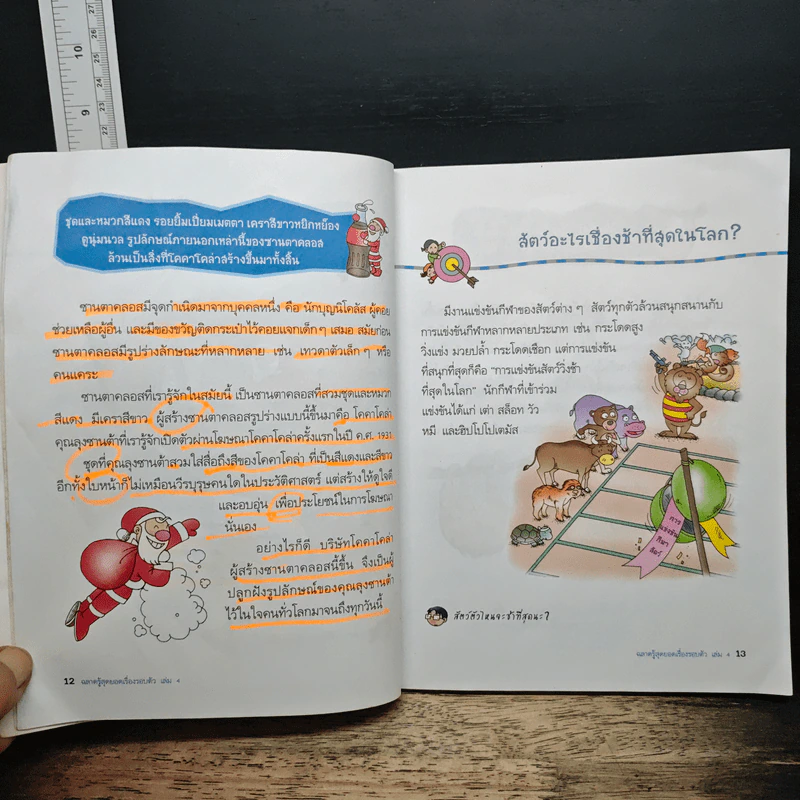 10
9
27
26
25
24
23
22
ชุดและหมวกสีแดง รอยยิ้มเปี่ยมเมตตา เคราสีขาวหยิกหย็อง
ดูนุ่มนวล รูปลักษณ์ภายนอกเหล่านี้ของซานตาคลอส
ล้วนเป็นสิ่งที่โคคาโคล่าสร้างขึ้นมาทั้งสิ้น
ซานตาคลอสมีจุดกำเนิดมาจากบุคคลหนึ่ง คือ นักบุญนิโคลัส ผู้คอย
ช่วยเหลือผู้อื่น และมีของขวัญติดกระเป๋าไว้คอยแจกเด็กๆ เสมอ สมัยก่อน
ซานตาคลอสมีรูปร่างลักษณะที่หลากหลาย เช่น เทวดาตัวเล็กๆ หรือ
คนแคระ
ซานตาคลอสที่เรารู้จักในสมัยนี้ เป็นซานตาคลอสที่สวมชุดและหมวก
สีแดง มีเคราสีขาว ผู้สร้างซานตาคลอสรูปร่างแบบนี้ขึ้นมาคือ โคคาโคล่า
คุณลุงซานต้าที่เรารู้จักเปิดตัวผ่านโฆษณาโคคาโคล่าครั้งแรกในปี ค.ศ. 1931
ชุดที่คุณลุงซานต้าสวมใส่สื่อถึงสีของโคคาโคล่า ที่เป็นสีแดงและสีขาว
อีกทั้งใบหน้าก็ไม่เหมือนวีรบุรุษคนใดในประวัติศาสตร์ แต่สร้างให้ดูใจดี
และอบอุ่น เพื่อประโยชน์ในการโฆษณา
นั่นเอง
อย่างไรก็ดี บริษัทโคคาโคล่า
ผู้สร้างซานตาคลอสนี้ขึ้น จึงเป็นผู้
ปลูกฝังรูปลักษณ์ของคุณลุงซานต้า
ไว้ในใจคนทั่วโลกมาจนถึงทุกวันนี้
12 ฉลาดรู้สุดยอดเรื่องรอบตัว เล่ม 4
สัตว์อะไรเชื่องช้าที่สุดในโลก?
มีงานแข่งขันกีฬาของสัตว์ต่างๆ สัตว์ทุกตัวล้วนสนุกสนานกับ
การแข่งขันกีฬาหลากหลายประเภท เช่น กระโดดสูง
วิ่งแข่ง มวยปล้ำ กระโดดเชือก แต่การแข่งขัน
ที่สนุกที่สุดก็คือ "การแข่งขันสัตว์วิ่งช้า
ที่สุดในโลก" นักกีฬาที่เข้าร่วม
แข่งขันได้แก่ เต่า สล็อท วัว
หมี และฮิปโปโปเตมัส
การ
แข่งขัน
กีฬา
สัตว์
สัตว์ตัวไหนจะช้าที่สุดนะ?
ฉลาดรู้สุดยอดเรื่องรอบตัว เล่ม 4 13